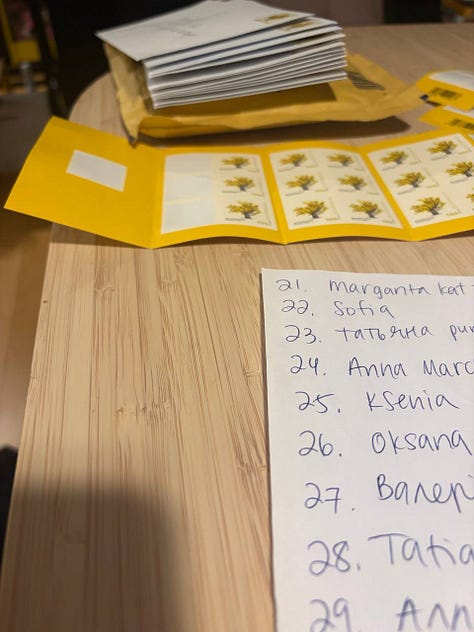 21. Margarita Kat
22. Sofia
23. Татьяна
24. Anna Marc
25. Ksenia
26. Oksana
27. Валери
28. Tatia
29 Ann